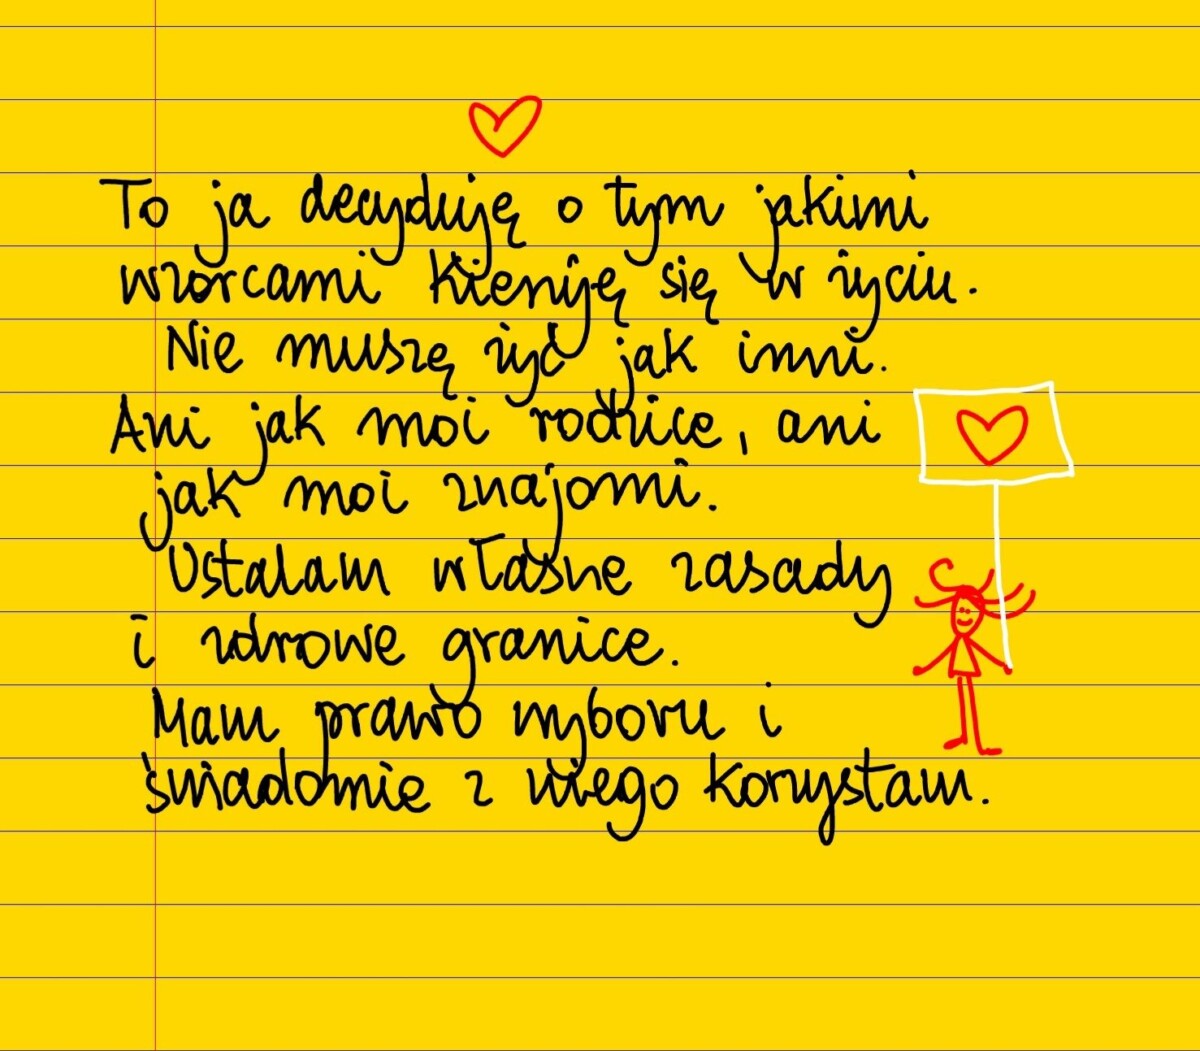 To ja decyduję o tym jakimi
wzorcami kieruję się w życiu.
Nie muszę żyć jak inni.
Ani jak moi rodzice, ani
jak moi znajomi.
Ustalam własne zasady
i zdrowe granice.
Mam prawo wyboru i
świadomie z niego korzystam.